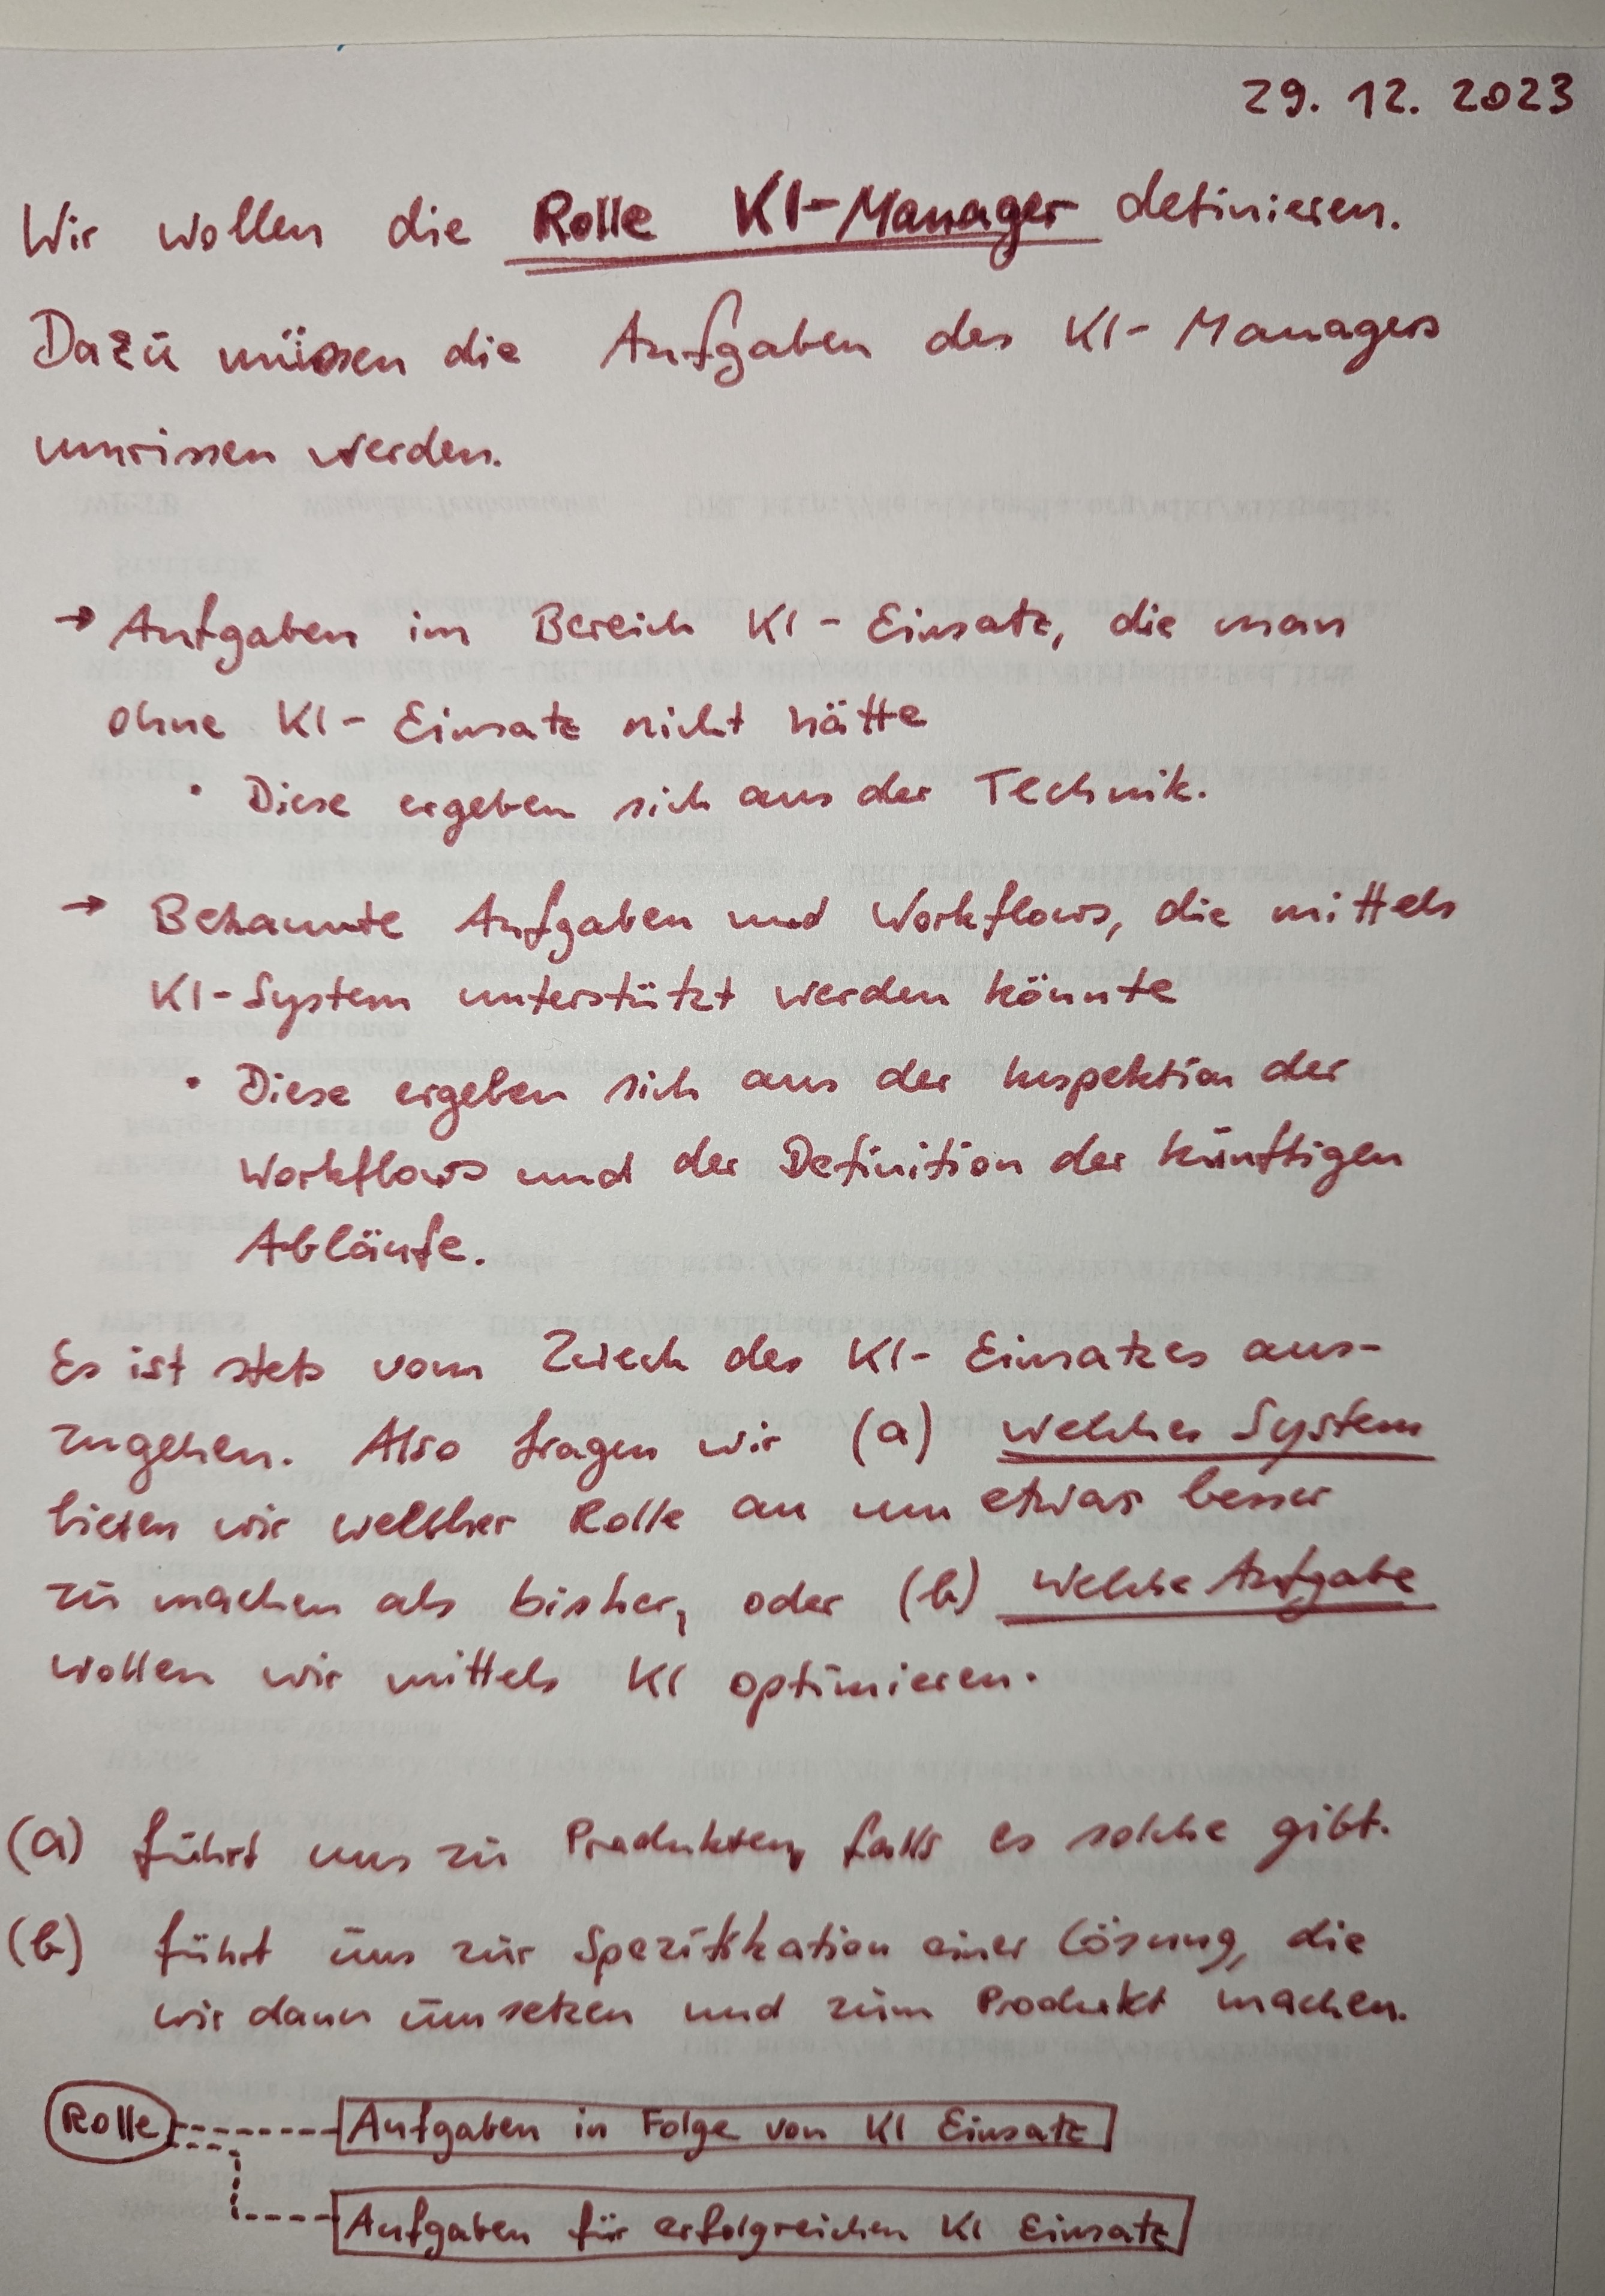 29. 12. 2023
Wir wollen die Rolle KI-Manager definieren.
Dazu müssen die Aufgaben des KI-Managers
umrissen werden.
→ Aufgaben im Bereich KI-Einsatz, die man
ohne KI-Einsatz nicht hätte
• Diese ergeben sich aus der Technik.
→ Bekannte Aufgaben und Workflows, die mittels
KI-System unterstützt werden könnte
• Diese ergeben sich aus der Inspektion der
Workflows und der Definition der künftigen
Abläufe.
Es ist stets vom Zweck des KI-Einsatzes aus-
zugehen. Also fragen wir (a) welches System
bieten wir welcher Rolle an um etwas besser
zu machen als bisher, oder (b) welche Aufgabe
wollen wir mittels KI optimieren.
(a) führt uns zu Produkten, falls es solche gibt.
(b) führt uns zur Spezifikation einer Lösung, die
wir dann umsetzen und zum Produkt machen.
Rolle
Aufgaben in Folge von KI Einsatz
Aufgaben für erfolgreichen KI Einsatz